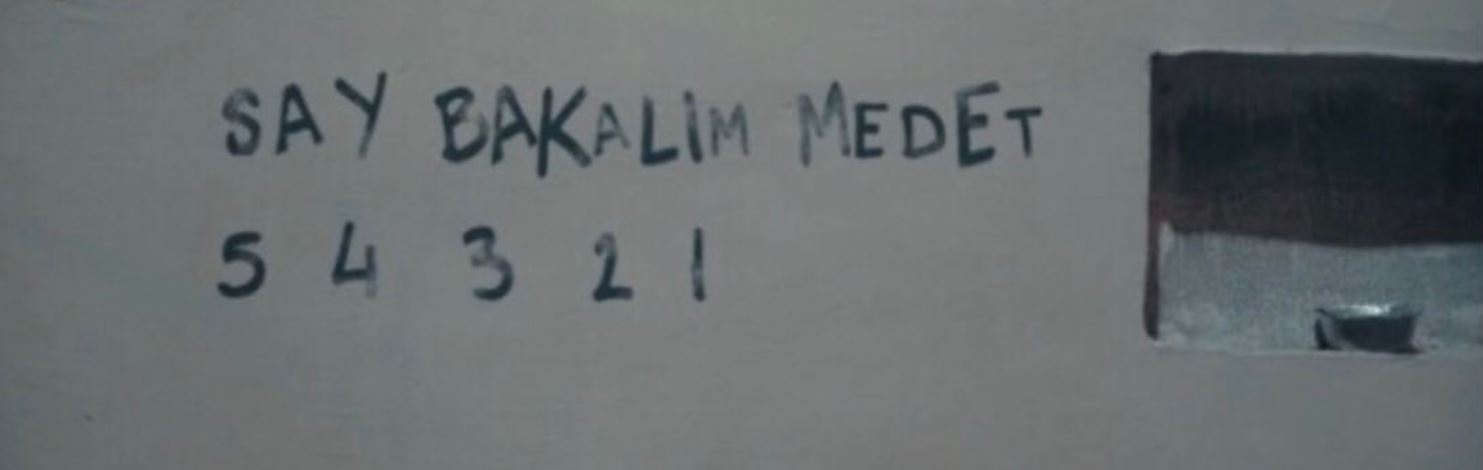 SAY BAKALIM MEDET
5 4 3 2 1